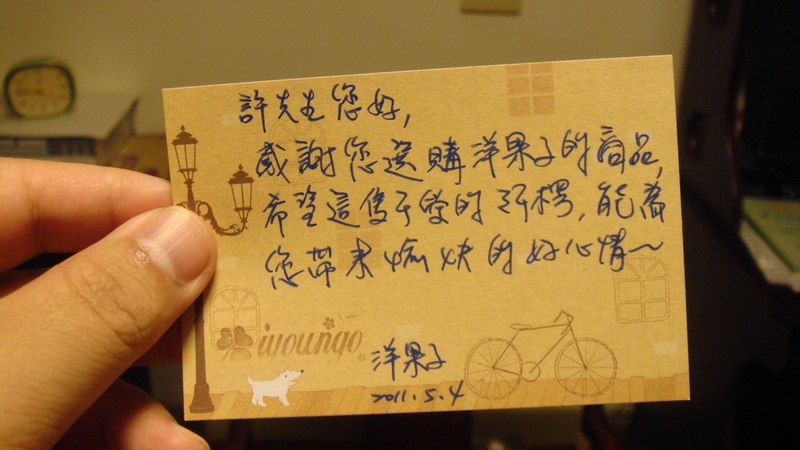 許先生您好,
感謝您選購洋果子的商品,
希望這隻可愛的,能為
您帶來愉快的好心情~
iyoungo
洋果子
2011.5.4